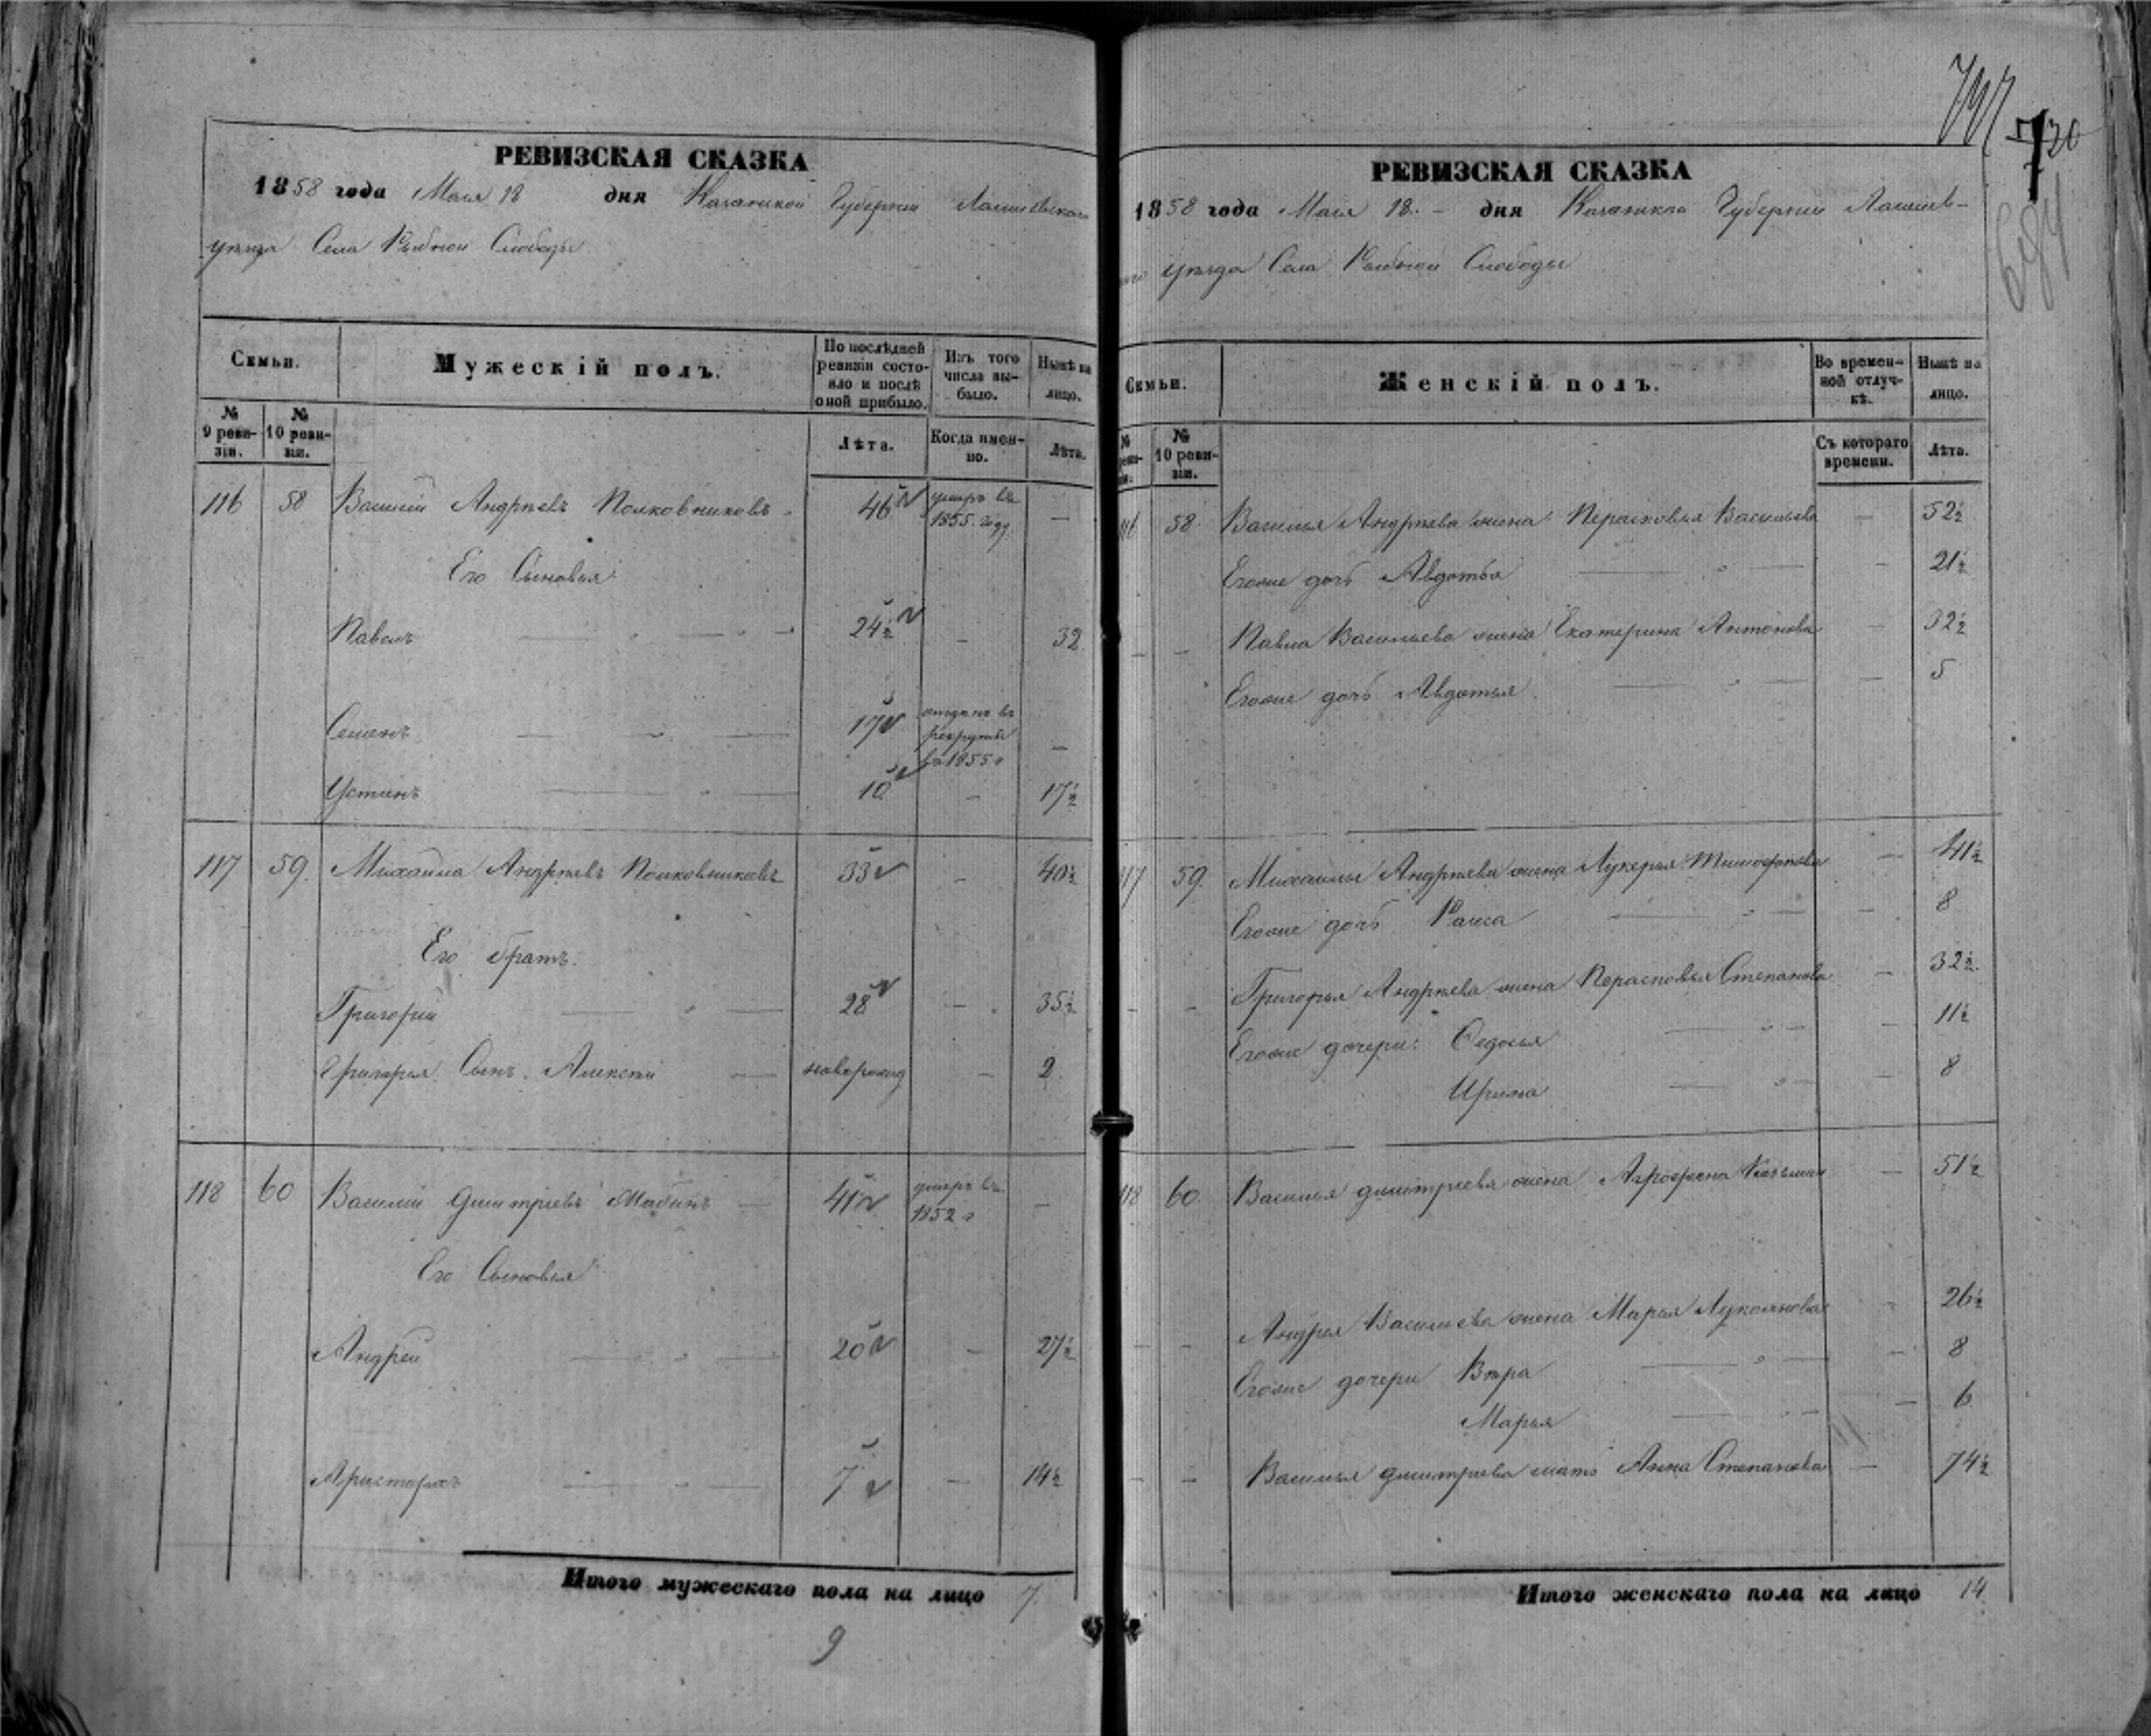 РЕВИЗСКАЯ СКАЗКА
1858 года Мая 18 дня Казанской Губернии Лаишевскаго
уѣзда Села Рыбной Слободы
Семьи.
Мужескій полъ.
По послѣдней ревизіи состояло и послѣ оной прибыло.
Изъ того числа выбыло.
Нынѣ на лицо.
№ 9 ревизіи.
№ 10 ревизіи.
Лѣта.
Когда именно.
Лѣта.
116 58 Василій Андреевъ Полковниковъ 46 умеръ въ 1855 году —
Его Сыновья:
Павелъ 24½ — 32
Семенъ 17 отданъ въ рекруты въ 1855 г —
Устинъ 10 — 17½
117 59. Михайла Андреевъ Полковниковъ 33 — 40½
Его братъ:
Григорій 28 — 35½
Григорья Сынъ Алексѣй новорожд — 2
118 60 Василій Дмитріевъ Мабинъ 41 умеръ въ 1852 г —
Его Сыновья:
Андрей 20 — 27½
Аристархъ 7 — 14½
Итого мужескаго пола на лицо 7.
9
720
694
РЕВИЗСКАЯ СКАЗКА
1858 года Мая 18. дня Казанской Губернии Лаишев-
уѣзда Села Рыбной Слободы
Семьи.
Женскій полъ.
Во временной отлучкѣ.
Нынѣ на лицо.
№ 10 ревизіи.
Съ котораго времени.
Лѣта.
116 58. Василья Андреева жена Перасковья Васильева — 52½
Егоже дочь Авдотья — 21½
— — Павла Васильева жена Екатерина Антонова — 32½
Егоже дочь Авдотья — 5
117 59. Михаилы Андреева жена Лукерья Тимофеева — 41½
Егоже дочь Раиса — 8
— — Григорья Андреева жена Перасковья Степанова — 32½
Егоже дочери: Федосья — 11½
Ирина — 8
118 60. Василья Дмитриева жена Агрофена Казьмина — 51½
— — Андрея Васильева жена Марья Лукоянова — 26½
Егоже дочери Вѣра — 8
Марья — 6
— — Василья Дмитриева мать Анна Степанова — 74½
Итого женскаго пола на лицо 14